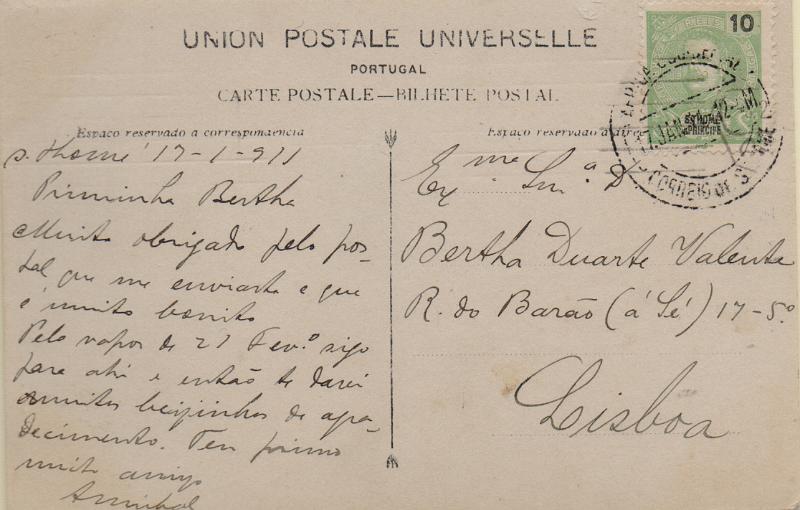 UNION POSTALE UNIVERSELLE
PORTUGAL
CARTE POSTALE—BILHETE POSTAL
Espaço reservado á correspondencia
S. Thomé 17-1-911
Priminha Bertha
Muito obrigado pelo pos-
tal que me enviaste e que
é muito bonito
Pelo vapor de 21 Fev.º sigo
para ahi e então te darei
muitos beijinhos de agra-
decimento. Teu primo
muito amigo
Annibal
Espaço reservado á
10
S. THOMÉ
E PRINCIPE
CORREIO DE S. THOMÉ
Ex.ma Sn.ª D.
Bertha Duarte Valente
R. do Barão (á Sé) 17-5º
Lisboa